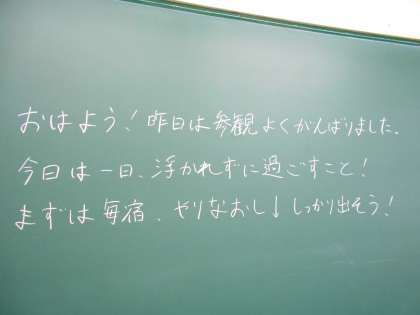 おはよう!昨日は参観よくがんばりました。
今日は一日、浮かれずに過ごすこと!
まずは毎宿、やりなおし↓しっかり出そう!